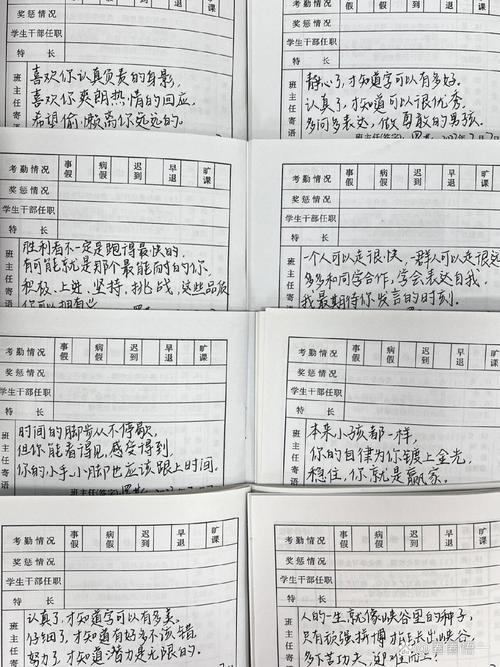 考勤情况
奖惩情况
学生干部任职
特 长
班主任寄语
喜欢你认真负责的身影,
喜欢你爽朗热情的回应,
希望偷懒离你远远的。
考勤情况
奖惩情况
学生干部任职
特 长
班主任寄语
静心了,才知道字可以有多好。
认真了,才知道可以很优秀。
多问多表达,做勇敢的男孩。
班主任(签字)
考勤情况 事假 病假 迟到 早退 旷课
奖惩情况
学生干部任职
特 长
班主任寄语
胜利者不一定是跑得最快的,
有可能就是那个最能耐的你
积极、上进、坚持、挑战,这些品质
你可以拥有
考勤情况 事假 病假 迟到 早退 旷课
奖惩情况
学生干部任职
特 长
班主任寄语
一个人可以走很快,一群人可以走很远
多多和同学合作,学会表达自我,
我最期待你发言的时刻。
考勤情况 事假 病假 迟到 早退 旷课
奖惩情况
学生干部任职
特 长
班主任寄语
时间的脚步从不停歇,
但你能看得见,感受得到,
你的小手小脚也应该跟上时间。
班主任(签字)
考勤情况 事假 病假 迟到 早退 旷课
奖惩情况
学生干部任职
特 长
班主任寄语
本来小孩都一样,
你的自律为你镀上金光,
稳住,你就是赢家。
考勤情况 事假 病假 迟到 早退 旷课
奖惩情况
学生干部任职
特 长
班主任
认真了,才知道字可以有多美。
仔细了,才知道有好多不该错
努力了,才知道潜力是无限的。
考勤情况 事假 病假 迟到 早退 旷课
奖惩情况
学生干部任职
特 长
班主任寄
人的一生就像峡谷里的种子,
只有顽强拼搏才能长出峡谷,
多下苦功夫,迎难而上!